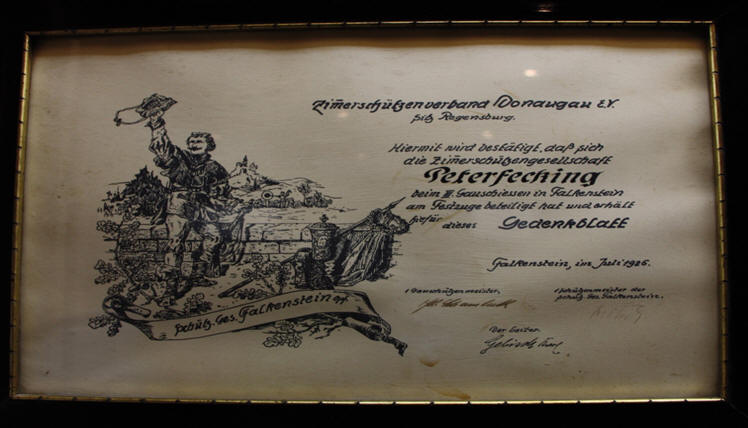 Zim̅erschützenverband Donaugau E.V.
sitz Regensburg.
Hiermit wird bestätigt, daß sich
die Zim̅erschützengesellschaft
Peterfecking
beim III. Gauschiessen in Falkenstein
am Festzuge beteiligt hat und erhält
hiefür dieses Gedenkblatt
Falkenstein, im Juli 1926.
1. Gauschützenmeister.
1. Schützenmeister der
schütz. Ges. Falkenstein.
Der Leiter.
schütz. Ges. Falkenstein